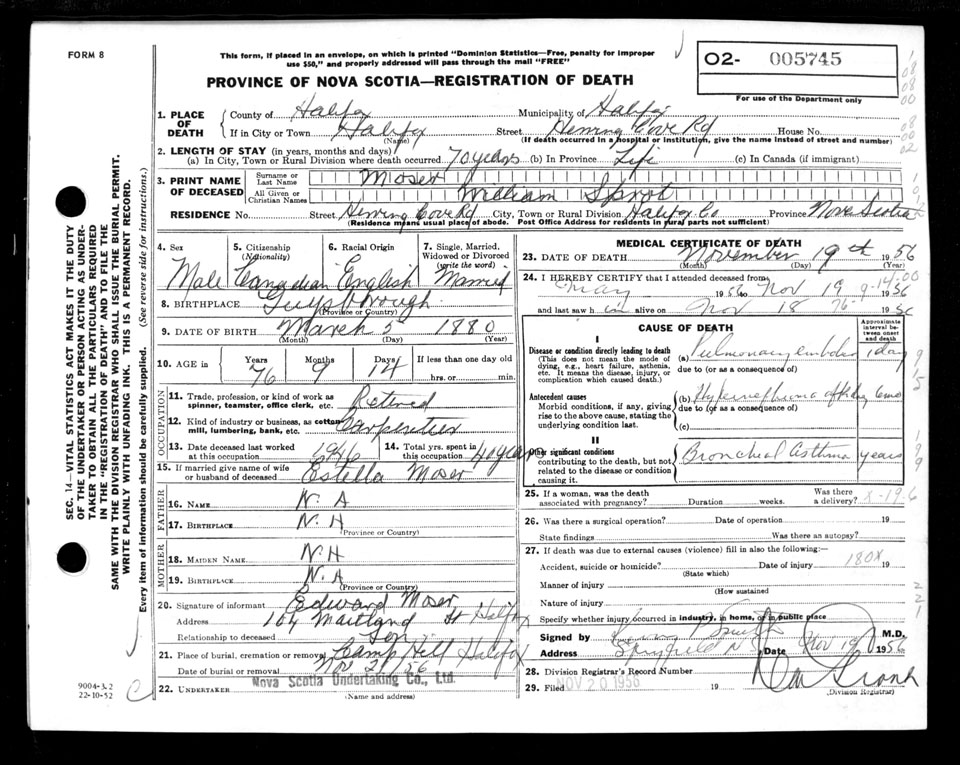 FORM 8
This form, if placed in an envelope, on which is printed "Dominion Statistics—Free, penalty for improper
use $50," and properly addressed will pass through the mail "FREE"
PROVINCE OF NOVA SCOTIA—REGISTRATION OF DEATH
O2- 005745
For use of the Department only
1. PLACE OF DEATH
County of Halifax Municipality of Halifax
If in City or Town Halifax Street Herring Cove Rd House No.
(Name) (If death occurred in a hospital or institution, give name instead of street and number)
2. LENGTH OF STAY (in years, months and days)
(a) In City, Town or Rural Division where death occurred 70 years (b) In Province Life (c) In Canada (if immigrant)
3. PRINT NAME OF DECEASED
Surname or Last Name Moser
All Given or Christian Names William Sprot
RESIDENCE No. Street Herring Cove Rd City, Town or Rural Division Halifax Co Province Nova Scotia
(Residence means usual place of abode. Post Office Address for residents in rural parts not sufficient)
4. Sex Male
5. Citizenship (Nationality) Canadian
6. Racial Origin English
7. Single, Married, Widowed or Divorced (write the word) Married
8. BIRTHPLACE Guysborough
(Province or Country)
9. DATE OF BIRTH March 5 1880
(Month) (Day) (Year)
10. AGE in Years 76 Months 9 Days 14 If less than one day old
hrs. or min.
OCCUPATION
11. Trade, profession, or kind of work as spinner, teamster, office clerk, etc. Retired
12. Kind of industry or business, as cotton mill, lumbering, bank, etc. Carpenter
13. Date deceased last worked at this occupation 1946
14. Total yrs. spent in this occupation 40 years
15. If married give name of wife or husband of deceased Estella Moser
FATHER
16. NAME N. A
17. BIRTHPLACE N. A
(Province or Country)
MOTHER
18. MAIDEN NAME N. A
19. BIRTHPLACE N. A
(Province or Country)
20. Signature of informant Edward Moser
Address 104 Maitland St Halifax
Relationship to deceased Son
21. Place of burial, cremation or removal Camp Hill Halifax
Date of burial or removal Nov 21 56
22. UNDERTAKER Nova Scotia Undertaking Co., Ltd.
(Name and address)
MEDICAL CERTIFICATE OF DEATH
23. DATE OF DEATH November 19th 1956
(Month) (Day) (Year)
24. I HEREBY CERTIFY that I attended deceased from
May 1956 to Nov 19 1956
and last saw him alive on Nov 18 1956
CAUSE OF DEATH
Approximate interval between onset and death
I
Disease or condition directly leading to death (a) Pulmonary embolus 1 day
(This does not mean the mode of dying, e.g., heart failure, asthenia, etc. It means the disease, injury, or complication which caused death.)
due to (or as a consequence of)
Antecedent causes (b) Hypernephroma of kidney 6 mo
Morbid conditions, if any, giving rise to the above cause, stating the underlying condition last.
due to (or as a consequence of)
(c)
II
Other significant conditions Bronchial Asthma years
contributing to the death, but not related to the disease or condition causing it.
25. If a woman, was the death associated with pregnancy? Duration weeks. Was there a delivery?
26. Was there a surgical operation? Date of operation 19
State findings Was there an autopsy?
27. If death was due to external causes (violence) fill in also the following:
Accident, suicide or homicide? Date of injury 19
180X
(State which)
Manner of injury
(How sustained)
Nature of injury
Specify whether injury occurred in industry, in home, or in public place
Signed by Smith M.D.
Address N S Date Nov 19 1956
28. Division Registrar's Record Number
29. Filed NOV 20 1956 19
(Division Registrar)
SEC. 14—VITAL STATISTICS ACT MAKES IT THE DUTY
OF THE UNDERTAKER OR PERSON ACTING AS UNDERTAKER
TO OBTAIN ALL THE PARTICULARS REQUIRED
IN THE "REGISTRATION OF DEATH" AND TO FILE THE
SAME WITH THE DIVISION REGISTRAR WHO SHALL ISSUE THE BURIAL PERMIT.
WRITE PLAINLY WITH UNFADING INK. THIS IS A PERMANENT RECORD.
Every item of information should be carefully supplied. (See reverse side for instructions.)
9004-3.2
22-10-52